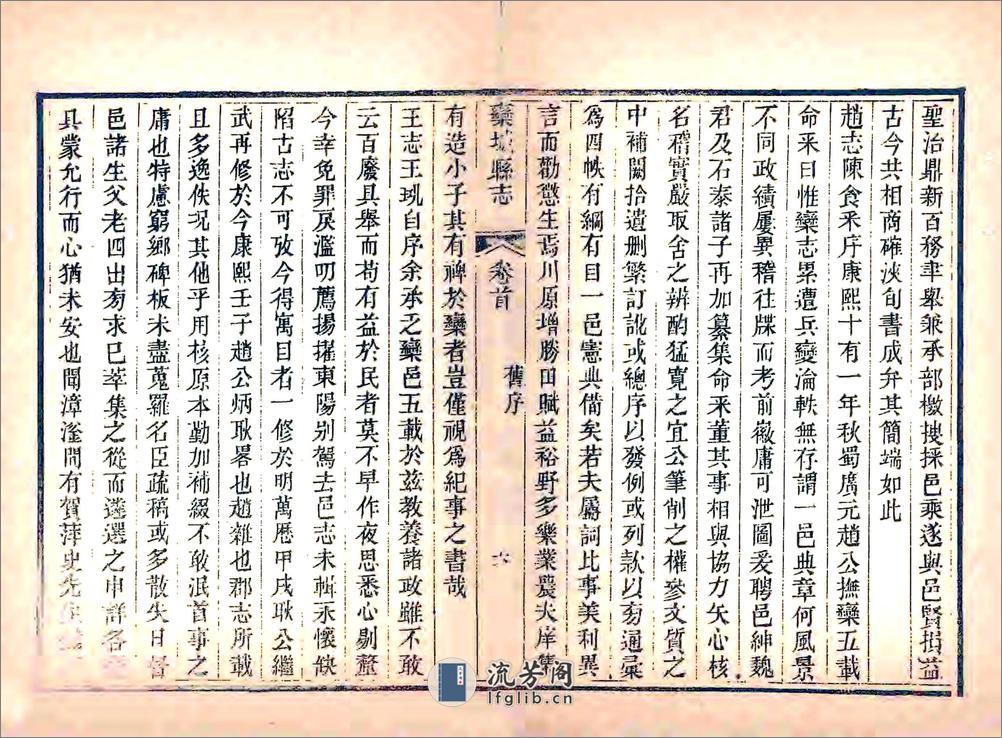 聖治鼎新百務聿舉兼承部檄搜採邑乘遂與邑賢損益
古今共相商確浹旬書成弁其簡端如此
趙志陳食采序康熙十有一年秋蜀廣元趙公撫欒五載
命采曰惟欒志累遭兵變淪軼無存謂一邑典章何風景
不同政績屢異稽往牒而考前徽庸可泄圖爰聘邑紳魏
君及石泰諸子再加纂集命采董其事相與協力矢心核
名稽實嚴取舍之辨酌猛寬之宜公筆削之權參文質之
中補闕拾遺刪繁訂訛或總序以發例或列款以旁通彚
為四帙有綱有目一邑憲典備矣若夫屬詞比事美利異
言而勸懲生焉川原增勝田賦益裕野多樂業農夫庠
欒城縣志
卷首
舊序
六
有造小子其有裨於欒者豈僅視為紀事之書哉
王志王玑自序余承乏欒邑五載於茲教養諸政雖不敢
云百廢具舉而苟有益於民者莫不早作夜思悉心剔釐
今幸免罪戾濫叨薦揚擢東陽別駕去邑志未輯永懷缺
陷古志不可攷今得寓目者一修於明萬曆甲戌耿公繼
武再修於今康熙壬子趙公炳耿畧也趙雜也郡志所載
且多逸佚况其他乎用核原本勤加補綴不敢泯首事之
庸也特慮窮鄉碑板未盡蒐羅名臣疏稿或多散失日督
邑諸生父老四出旁求巳萃集之從而遴選之申詳各
具蒙允行而心猶未安也聞漳滏間有賀萍史先
流芳阁
lfglib.cn